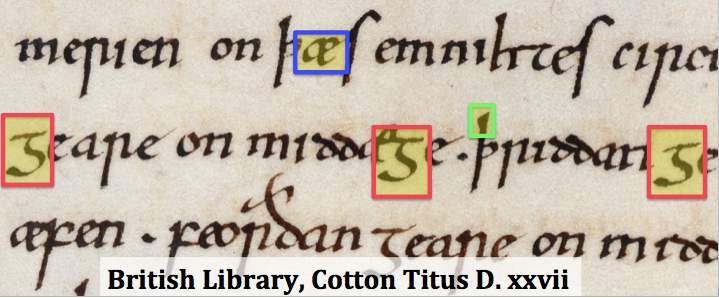 merien on þæs emnihtes circu
geare on middæge. þriddan ge
æfen. feorðan geare on midd
British Library, Cotton Titus D. xxvii